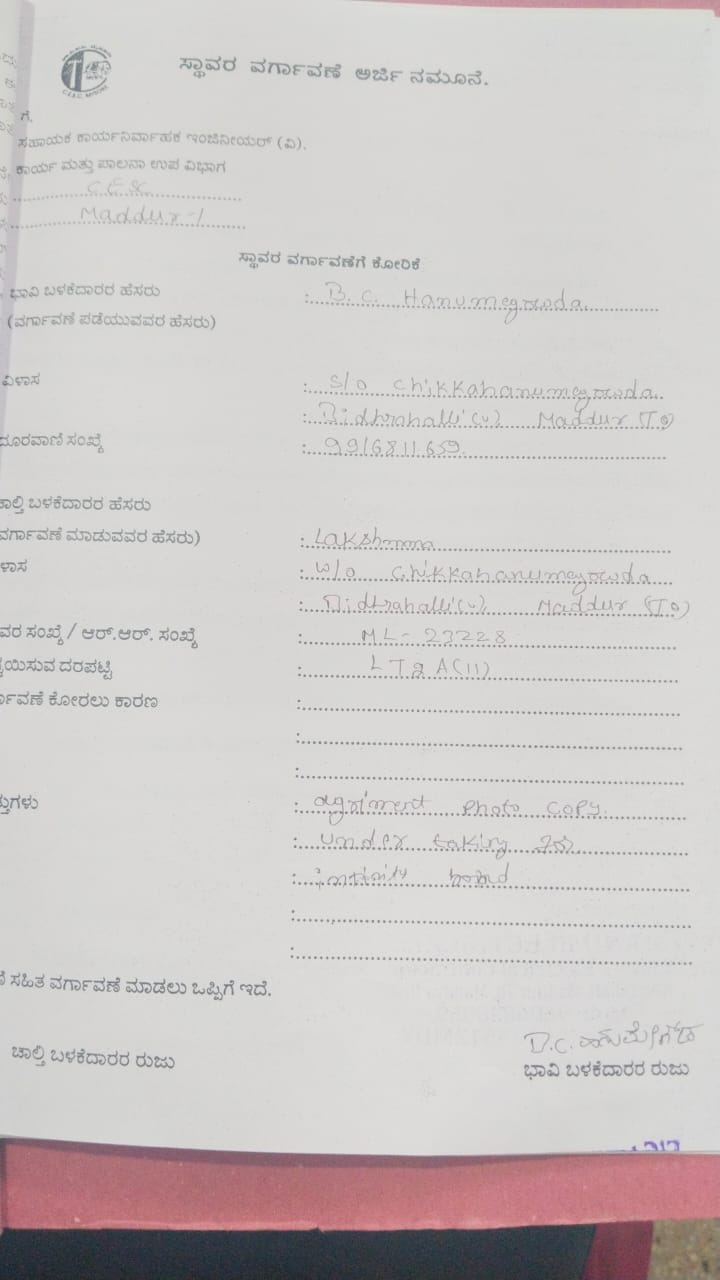 C.E.S.C. MYSORE
ಸ್ಥಾವರ ವರ್ಗಾವಣೆ ಅರ್ಜಿ ನಮೂನೆ.
ಗೆ,
ಸಹಾಯಕ ಕಾರ್ಯನಿರ್ವಾಹಕ ಇಂಜಿನೀಯರ್ (ವಿ).
ಕಾರ್ಯ ಮತ್ತು ಪಾಲನಾ ಉಪ ವಿಭಾಗ
CESC
Maddur-1
ಸ್ಥಾವರ ವರ್ಗಾವಣೆಗೆ ಕೋರಿಕೆ
ಭಾವಿ ಬಳಕೆದಾರರ ಹೆಸರು : B.C. Hanumegowda
(ವರ್ಗಾವಣೆ ಪಡೆಯುವವರ ಹೆಸರು)
ವಿಳಾಸ : S/o Chikkahanumegowda
: Bidhrahalli(v) Maddur (TQ)
ದೂರವಾಣಿ ಸಂಖ್ಯೆ : 9916811659
ಚಾಲ್ತಿ ಬಳಕೆದಾರರ ಹೆಸರು
ವರ್ಗಾವಣೆ ಮಾಡುವವರ ಹೆಸರು) : Lakshmma
ಳಾಸ : W/o Chikkahanumegowda
: Bidhrahalli(v) Maddur (TQ)
ವರ ಸಂಖ್ಯೆ / ಆರ್.ಆರ್. ಸಂಖ್ಯೆ : ML-23228
ಯಿಸುವ ದರಪಟ್ಟಿ : LT2 A(11)
ರ್ಗಾವಣೆ ಕೋರಲು ಕಾರಣ :
:
:
ತ್ತುಗಳು : agriment photo copy.
: under taking
: bond
:
:
ಸಹಿತ ವರ್ಗಾವಣೆ ಮಾಡಲು ಒಪ್ಪಿಗೆ ಇದೆ.
B.C. ಹನುಮೇಗೌಡ
ಚಾಲ್ತಿ ಬಳಕೆದಾರರ ರುಜು ಭಾವಿ ಬಳಕೆದಾರರ ರುಜು